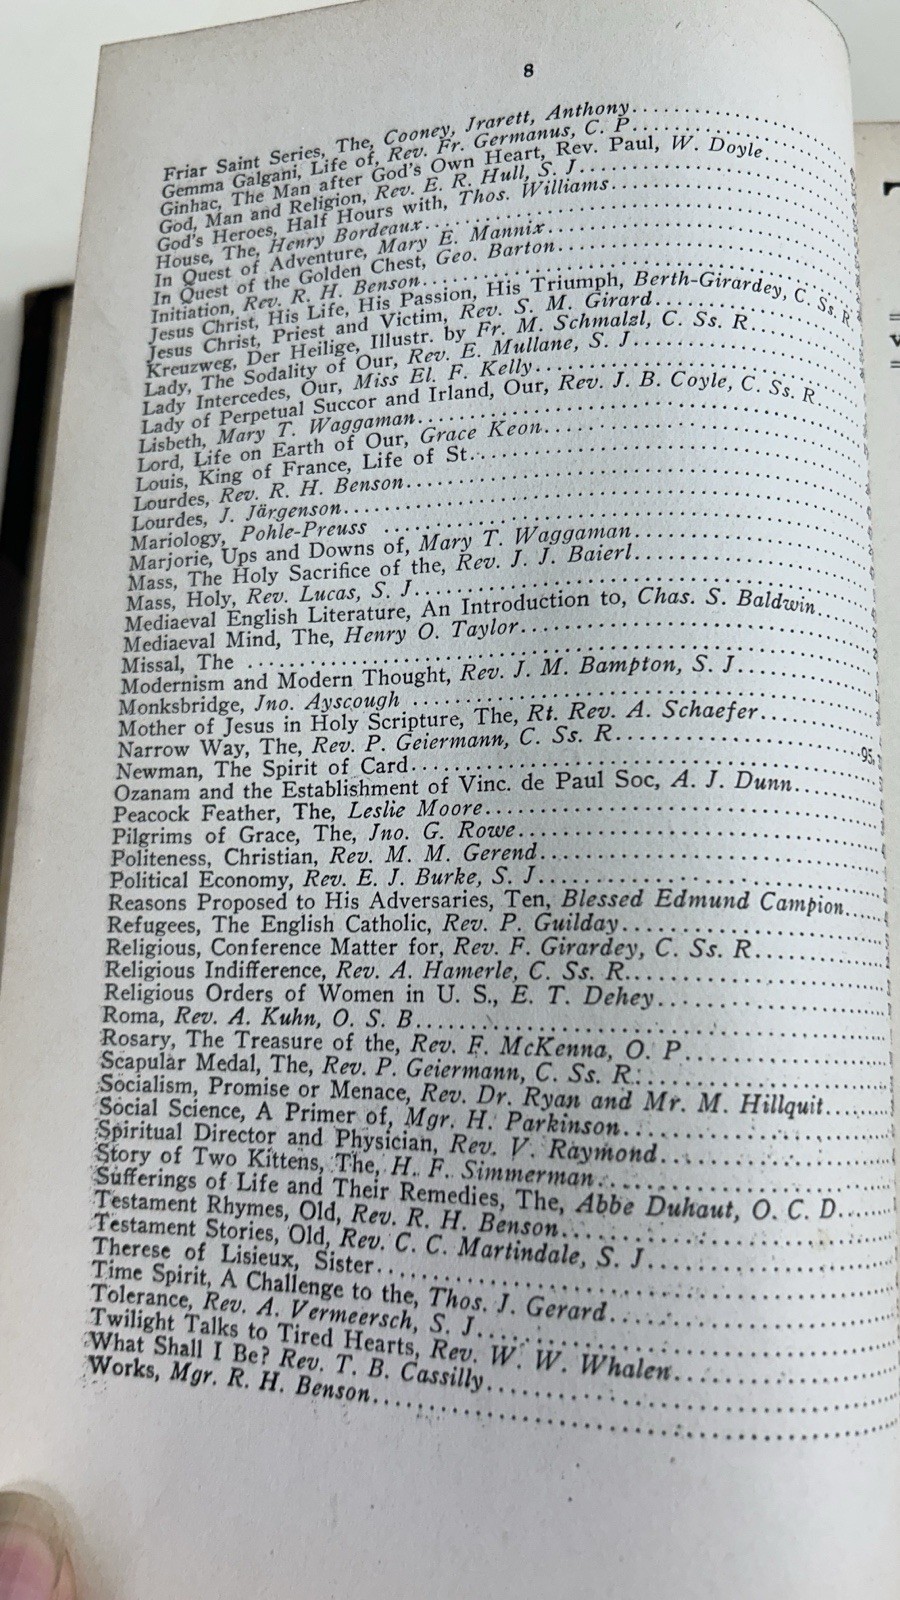 8
Friar Saint Series, The, Cooney, Jrarett, Anthony
Gemma Galgani, Life of, Rev. Fr. Germanus, C. P.
Ginhac, The Man after God's Own Heart, Rev. Paul, W. Doyle
God, Man and Religion, Rev. E. R. Hull, S. J.
God's Heroes, Half Hours with, Thos. Williams
House, The, Henry Bordeaux
In Quest of Adventure, Mary E. Mannix
In Quest of the Golden Chest, Geo. Barton
Initiation, Rev. R. H. Benson
Jesus Christ, His Life, His Passion, His Triumph, Berth-Girardey, C. Ss. R.
Jesus Christ, Priest and Victim, Rev. S. M. Girard
Kreuzweg, Der Heilige, Illustr. by Fr. M. Schmalzl, C. Ss. R.
Lady, The Sodality of Our, Rev. E. Mullane, S. J.
Lady Intercedes, Our, Miss El. F. Kelly
Lady of Perpetual Succor and Irland, Our, Rev. J. B. Coyle, C. Ss. R.
Lisbeth, Mary T. Waggaman
Lord, Life on Earth of Our, Grace Keon
Louis, King of France, Life of St.
Lourdes, Rev. R. H. Benson
Lourdes, J. Järgenson
Mariology, Pohle-Preuss
Marjorie, Ups and Downs of, Mary T. Waggaman
Mass, The Holy Sacrifice of the, Rev. J. J. Baierl
Mass, Holy, Rev. Lucas, S. J.
Mediaeval English Literature, An Introduction to, Chas. S. Baldwin
Mediaeval Mind, The, Henry O. Taylor
Missal, The
Modernism and Modern Thought, Rev. J. M. Bampton, S. J.
Monksbridge, Jno. Ayscough
Mother of Jesus in Holy Scripture, The, Rt. Rev. A. Schaefer
Narrow Way, The, Rev. P. Geiermann, C. Ss. R. 95,
Newman, The Spirit of Card.
Ozanam and the Establishment of Vinc. de Paul Soc, A. J. Dunn
Peacock Feather, The, Leslie Moore
Pilgrims of Grace, The, Jno. G. Rowe
Politeness, Christian, Rev. M. M. Gerend
Political Economy, Rev. E. J. Burke, S. J.
Reasons Proposed to His Adversaries, Ten, Blessed Edmund Campion
Refugees, The English Catholic, Rev. P. Guilday
Religious, Conference Matter for, Rev. F. Girardey, C. Ss. R.
Religious Indifference, Rev. A. Hamerle, C. Ss. R.
Religious Orders of Women in U. S., E. T. Dehey
Roma, Rev. A. Kuhn, O. S. B.
Rosary, The Treasure of the, Rev. F. McKenna, O. P.
Scapular Medal, The, Rev. P. Geiermann, C. Ss. R.
Socialism, Promise or Menace, Rev. Dr. Ryan and Mr. M. Hillquit
Social Science, A Primer of, Mgr. H. Parkinson
Spiritual Director and Physician, Rev. V. Raymond
Story of Two Kittens, The, H. F. Simmerman
Sufferings of Life and Their Remedies, The, Abbe Duhaut, O. C. D.
Testament Rhymes, Old, Rev. R. H. Benson
Testament Stories, Old, Rev. C. C. Martindale, S. J.
Therese of Lisieux, Sister
Time Spirit, A Challenge to the, Thos. J. Gerard
Tolerance, Rev. A. Vermeersch, S. J.
Twilight Talks to Tired Hearts, Rev. W. W. Whalen
What Shall I Be? Rev. T. B. Cassilly
Works, Mgr. R. H. Benson